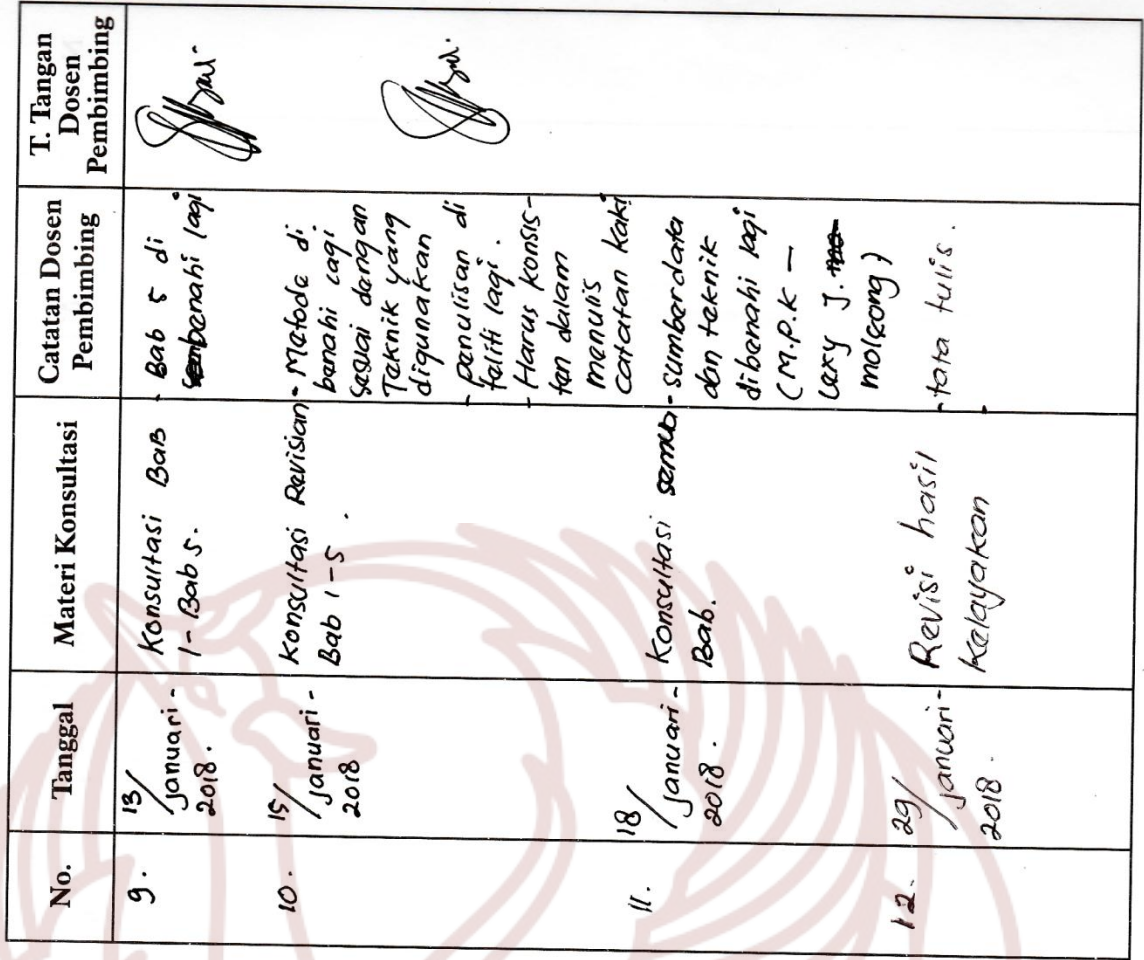 No.
Tanggal
Materi Konsultasi
Catatan Dosen
Pembimbing
T. Tangan
Dosen
Pembimbing
9.
13/
Januari -
2018.
Konsultasi Bab
1 - Bab 5.
- Bab 5 di
benahi lagi
10.
15/
Januari -
2018
Konsultasi Revisian
Bab 1 - 5.
- Metode di
benahi lagi
sesuai dengan
Teknik yang
digunakan
- penulisan di
teliti lagi.
- Harus konsis-
ten dalam
menulis
catatan kaki
11.
18/
Januari -
2018.
Konsultasi semua
Bab.
- sumber data
dan teknik
dibenahi lagi
(M.P.K -
Lexy J.
moleong)
12.
29/
Januari -
2018.
Revisi hasil
Kelayakan
- tata tulis.